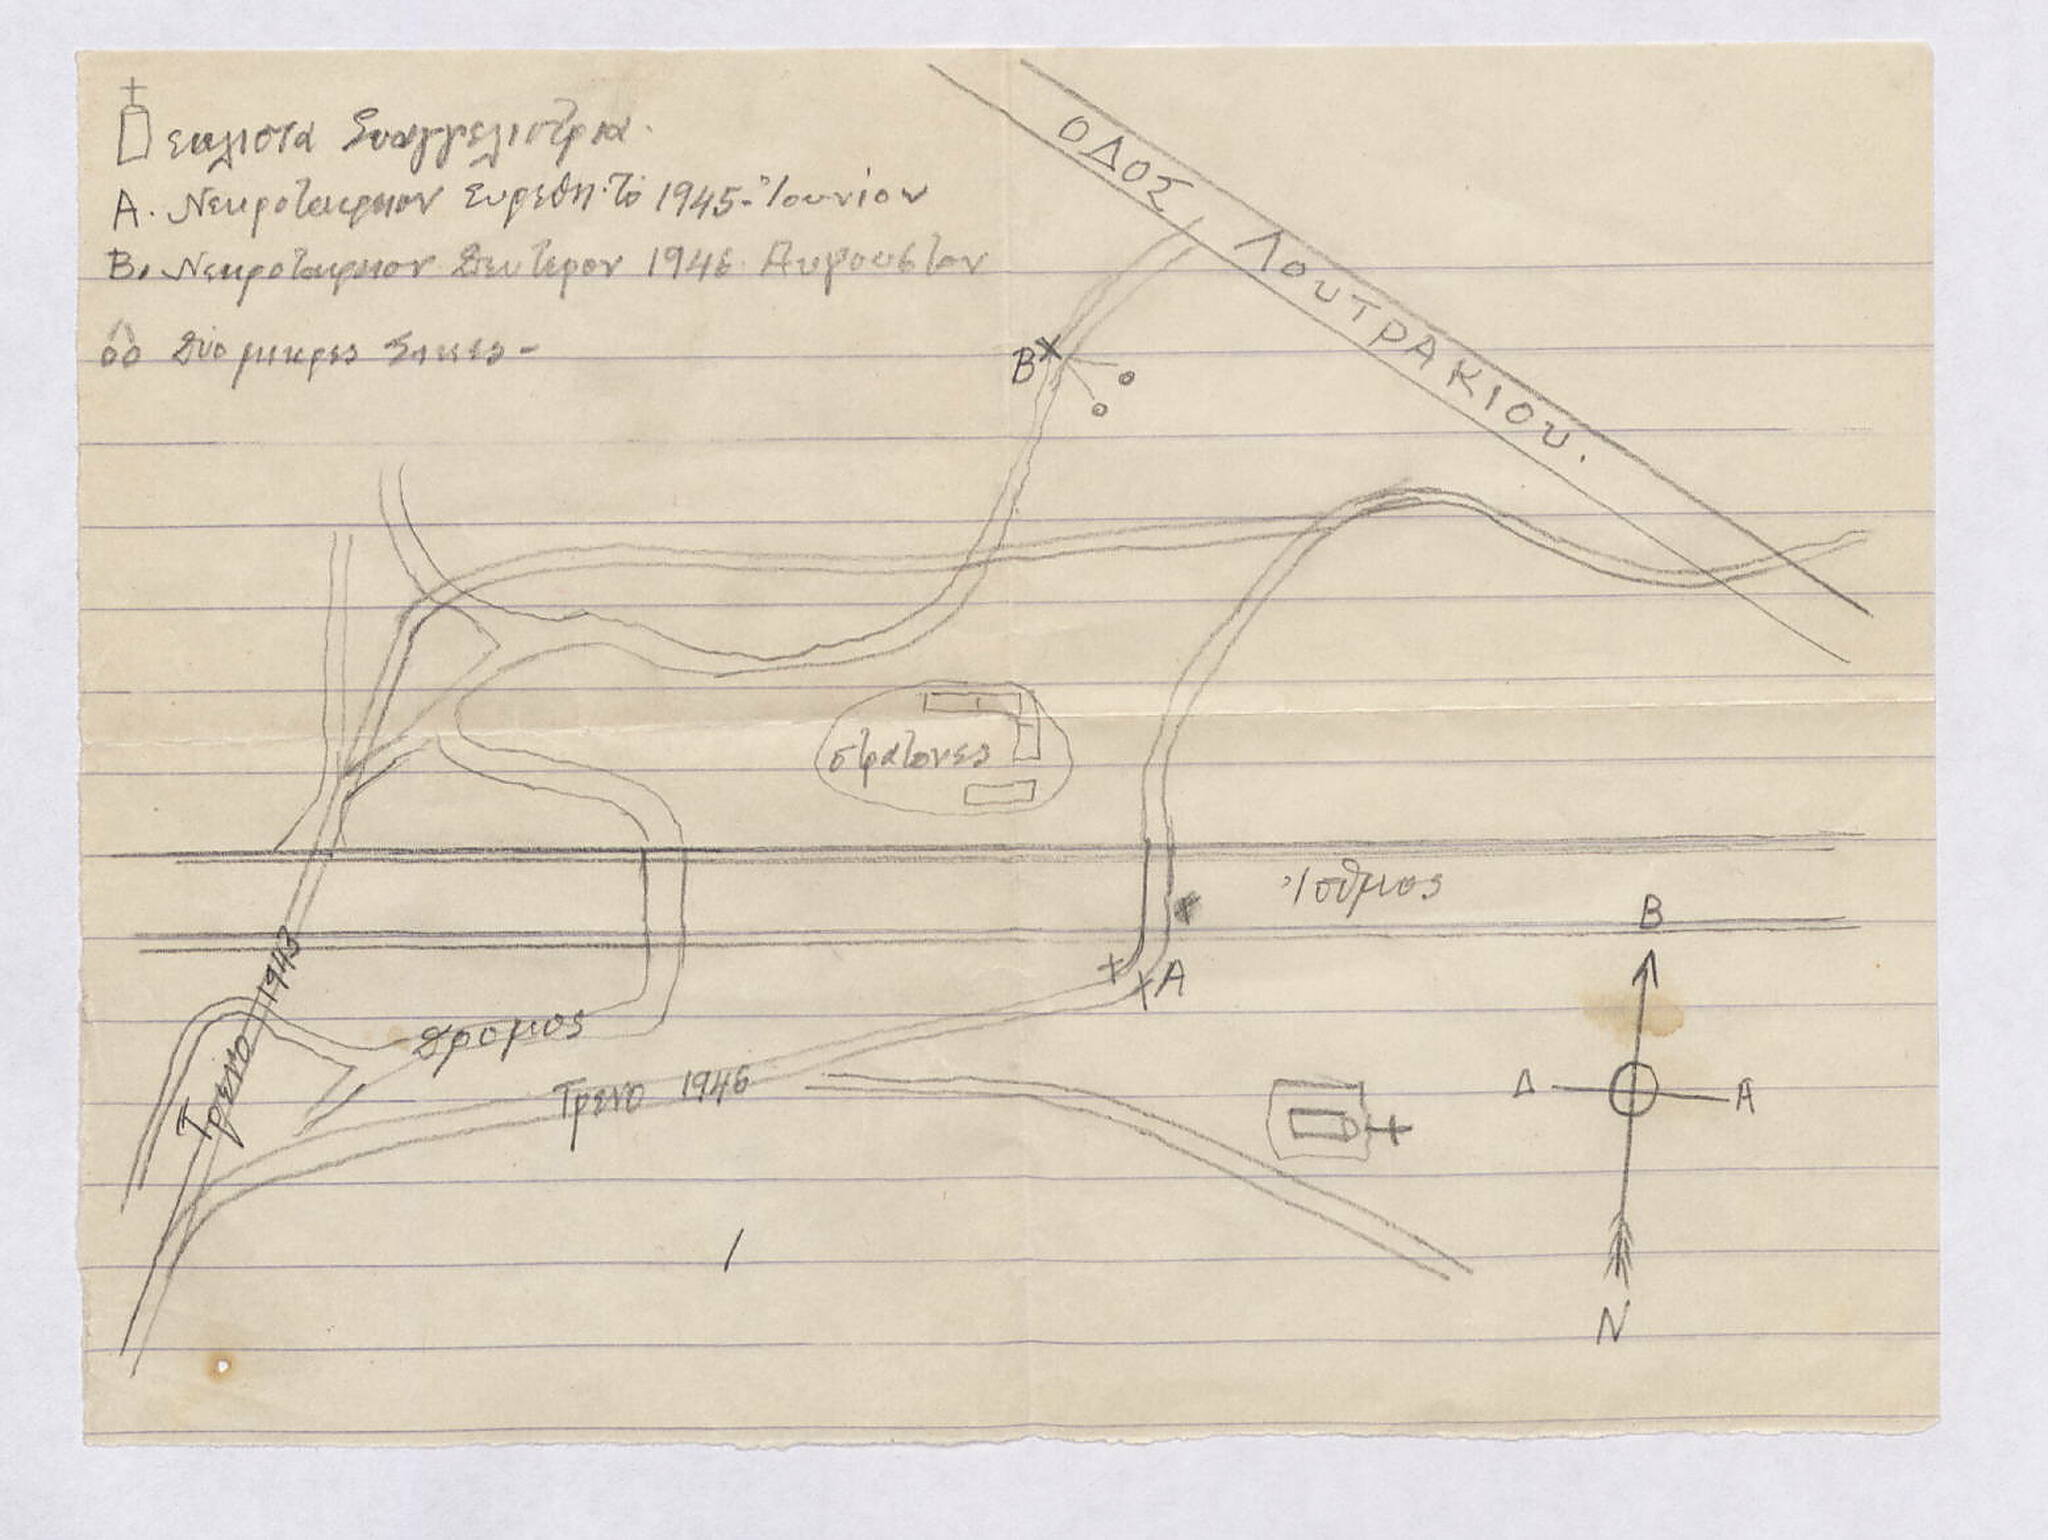 εκλισια Ευαγγελιστρια.
Α. Νεκροταφιον Ευρεθη το 1945 - Ιουνιον
Β. Νεκροταφιον Δευτερον 1946 Αυγουστον
δυο μικρες Συκες -
ΟΔΟΣ ΛουΤΡΑΚΙΟυ.
Β
στρατονες
Ἰσθμος
Β
Α
Τρενο 1943
δρομος
Τρενο 1946
Δ Α
Ν